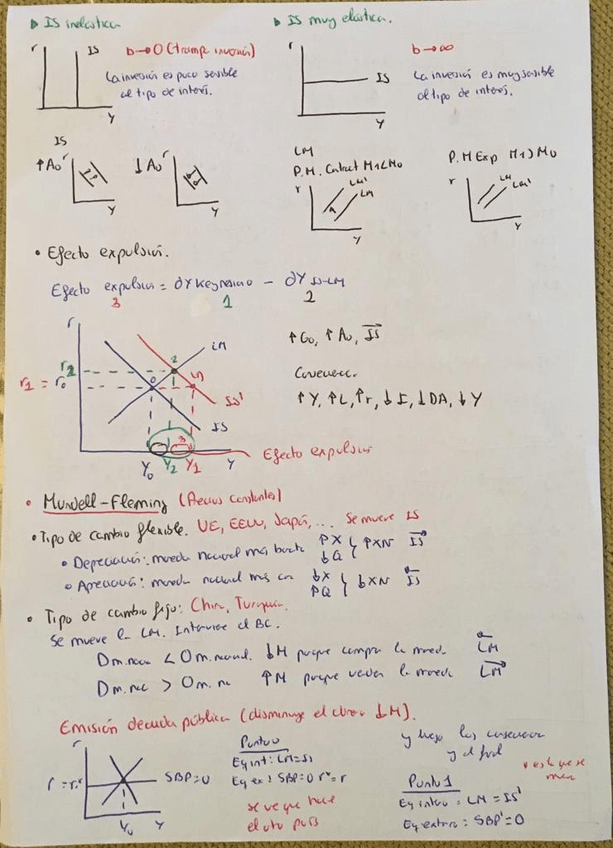 ▷ IS inelástica
▷ IS muy elástica.
r IS
b→0 (trampa inversión)
La inversión es poco sensible
al tipo de interés.
Y
r
IS
b→∞
La inversión es muy sensible
al tipo de interés.
Y
IS
↑A0 r
Y
↓A0 r
Y
LM
P.M. Contract M1<M0
r LM' LM
Y
P.M Exp M1>M0
r LM LM'
Y
• Efecto expulsión.
Efecto expulsión = ∂Y Keynesiano - ∂Y IS-LM
3 1 2
r
LM
r2
r1 = r0
2
0
IS'
IS
3
Y0 Y2 Y1 Y
Efecto expulsión
↑G0, ↑A0, IS→
↑Y, ↑L, ↑r, ↓I, ↓DA, ↓Y
• Mundell-Fleming (Precios constantes)
• Tipo de cambio flexible. UE, EEUU, Japón, ... Se mueve IS
• Depreciación: moneda nacional más barata ↑X ↓Q } ↑XN IS→
• Apreciación: moneda nacional más ca ↓X ↑Q } ↓XN IS←
• Tipo de cambio fijo: China, Turquía.
Se mueve la LM. Interviene el BC.
Dm.nac < Om.nacional. ↓M porque compra la moneda LM←
Dm.nac > Om.na ↑M porque vende la moneda LM→
Emisión deuda pública (disminuye el ↓M).
r
r = r*
SBP=0
Y0 Y
Punto 0
Eq int: LM=IS
Eq ex: SBP=0 r*=r
se ve que hace
el otro país
y luego las
y al final
Punto 1
Eq interno: LM = IS'
Eq externo: SBP'=0